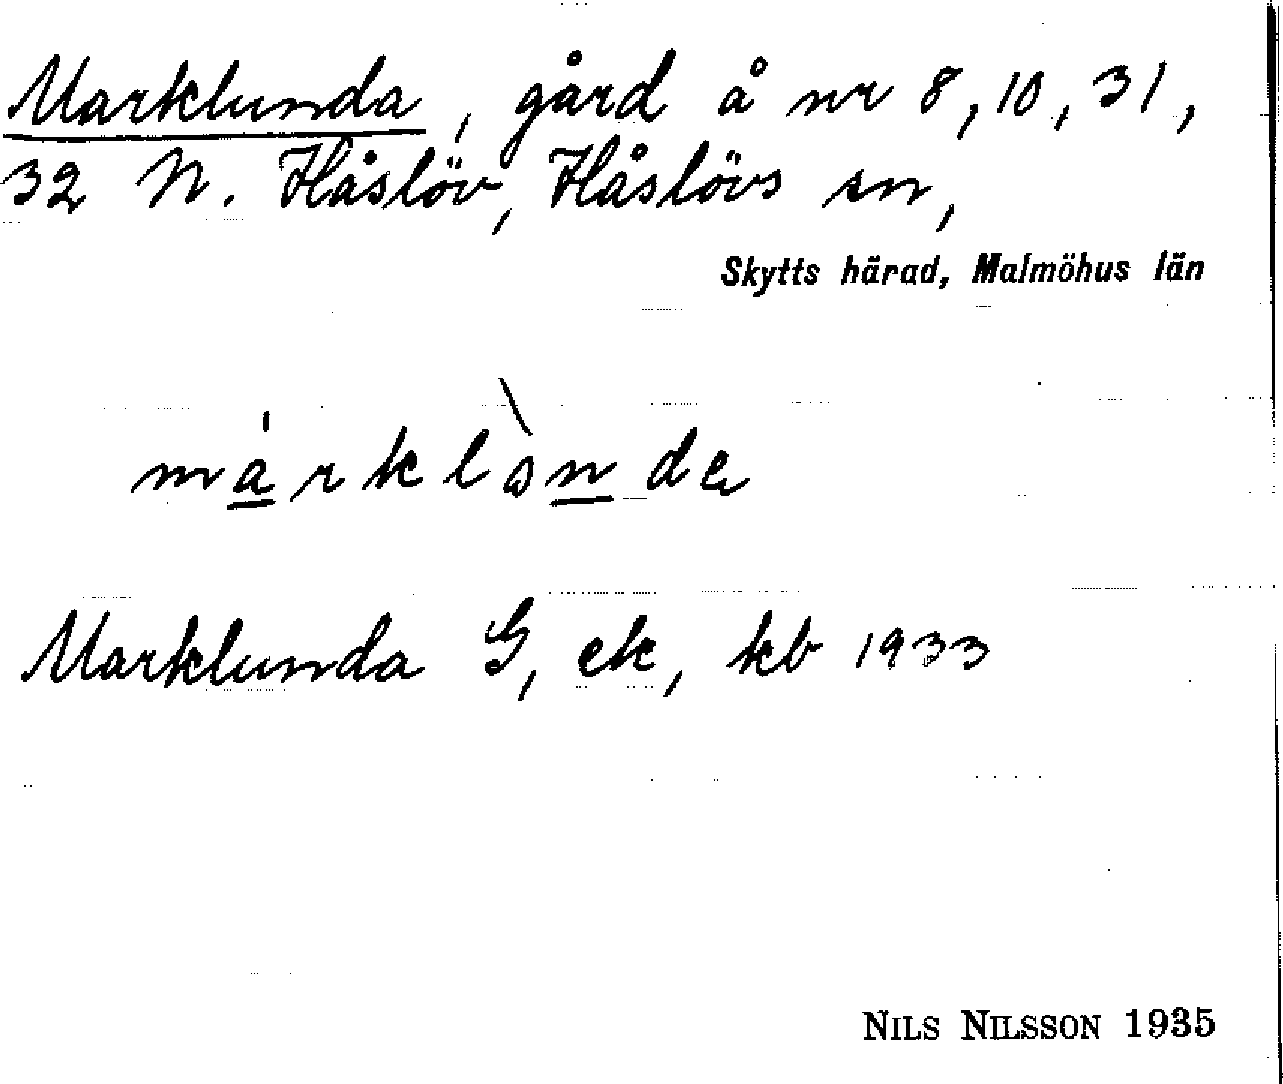 Marklunda, gård å nr 8, 10, 31,
32 N. Håslöv, Håslövs sn,
Skytts härad, Malmöhus län
Marklunda G, ek, kb 1933
NILS NILSSON 1935